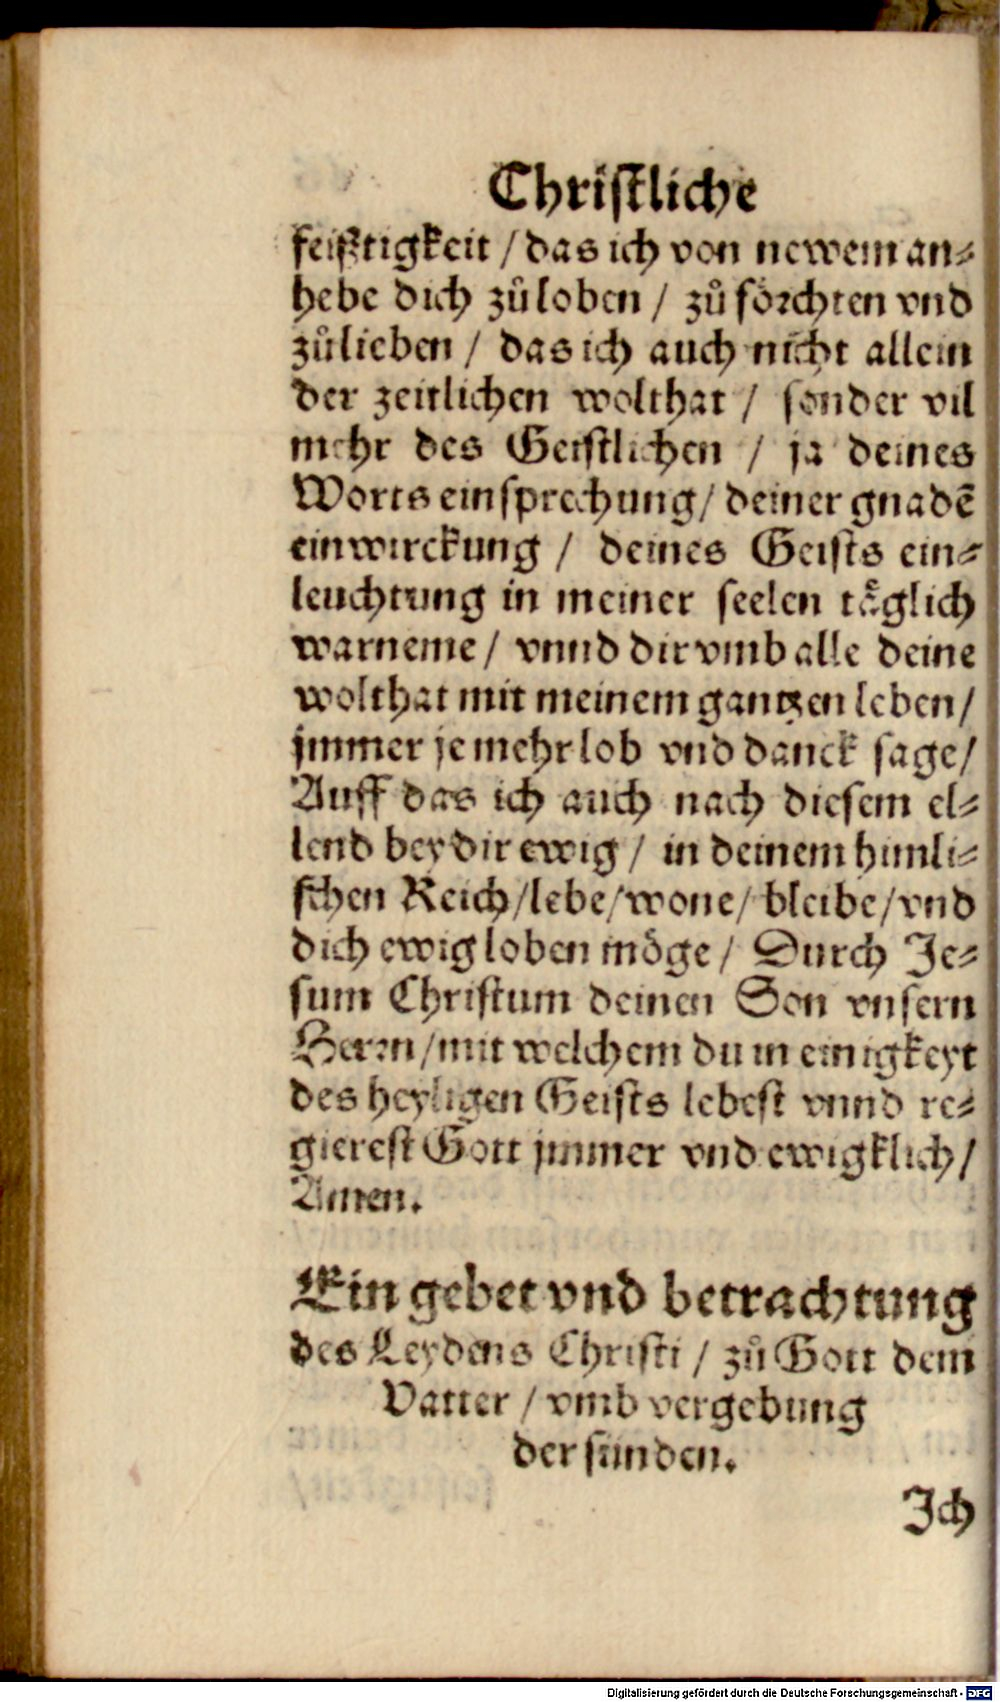 Christliche
feistigkeit / das ich von newem an⸗
hebe dich zů loben / zů förchten vnd
zů lieben / das ich auch nicht allein
der zeitlichen wolthat / sonder vil
mehr des Geistlichen / ja deines
Worts einsprechung / deiner gnadē
einwirckung / deines Geists ein⸗
leuchtung in meiner seelen täglich
warneme / vnnd dir vmb alle deine
wolthat mit meinem gantzen leben /
jmmer je mehr lob vnd danck sage /
Auff das ich auch nach diesem el⸗
lend bey dir ewig / in deinem himli⸗
schen Reich / lebe / wone / bleibe / vnd
dich ewig loben möge / Durch Je⸗
sum Christum deinen Son vnsern
Herrn / mit welchem du in einigkeyt
des heyligen Geists lebest vnnd re⸗
gierest Gott jmmer vnd ewigklich /
Amen.
Ein gebet vnd betrachtung
des Leydens Christi / zů Gott dem
Vatter / vmb vergebung
der sünden.
Ich
Digitalisierung gefördert durch die Deutsche Forschungsgemeinschaft - DFG